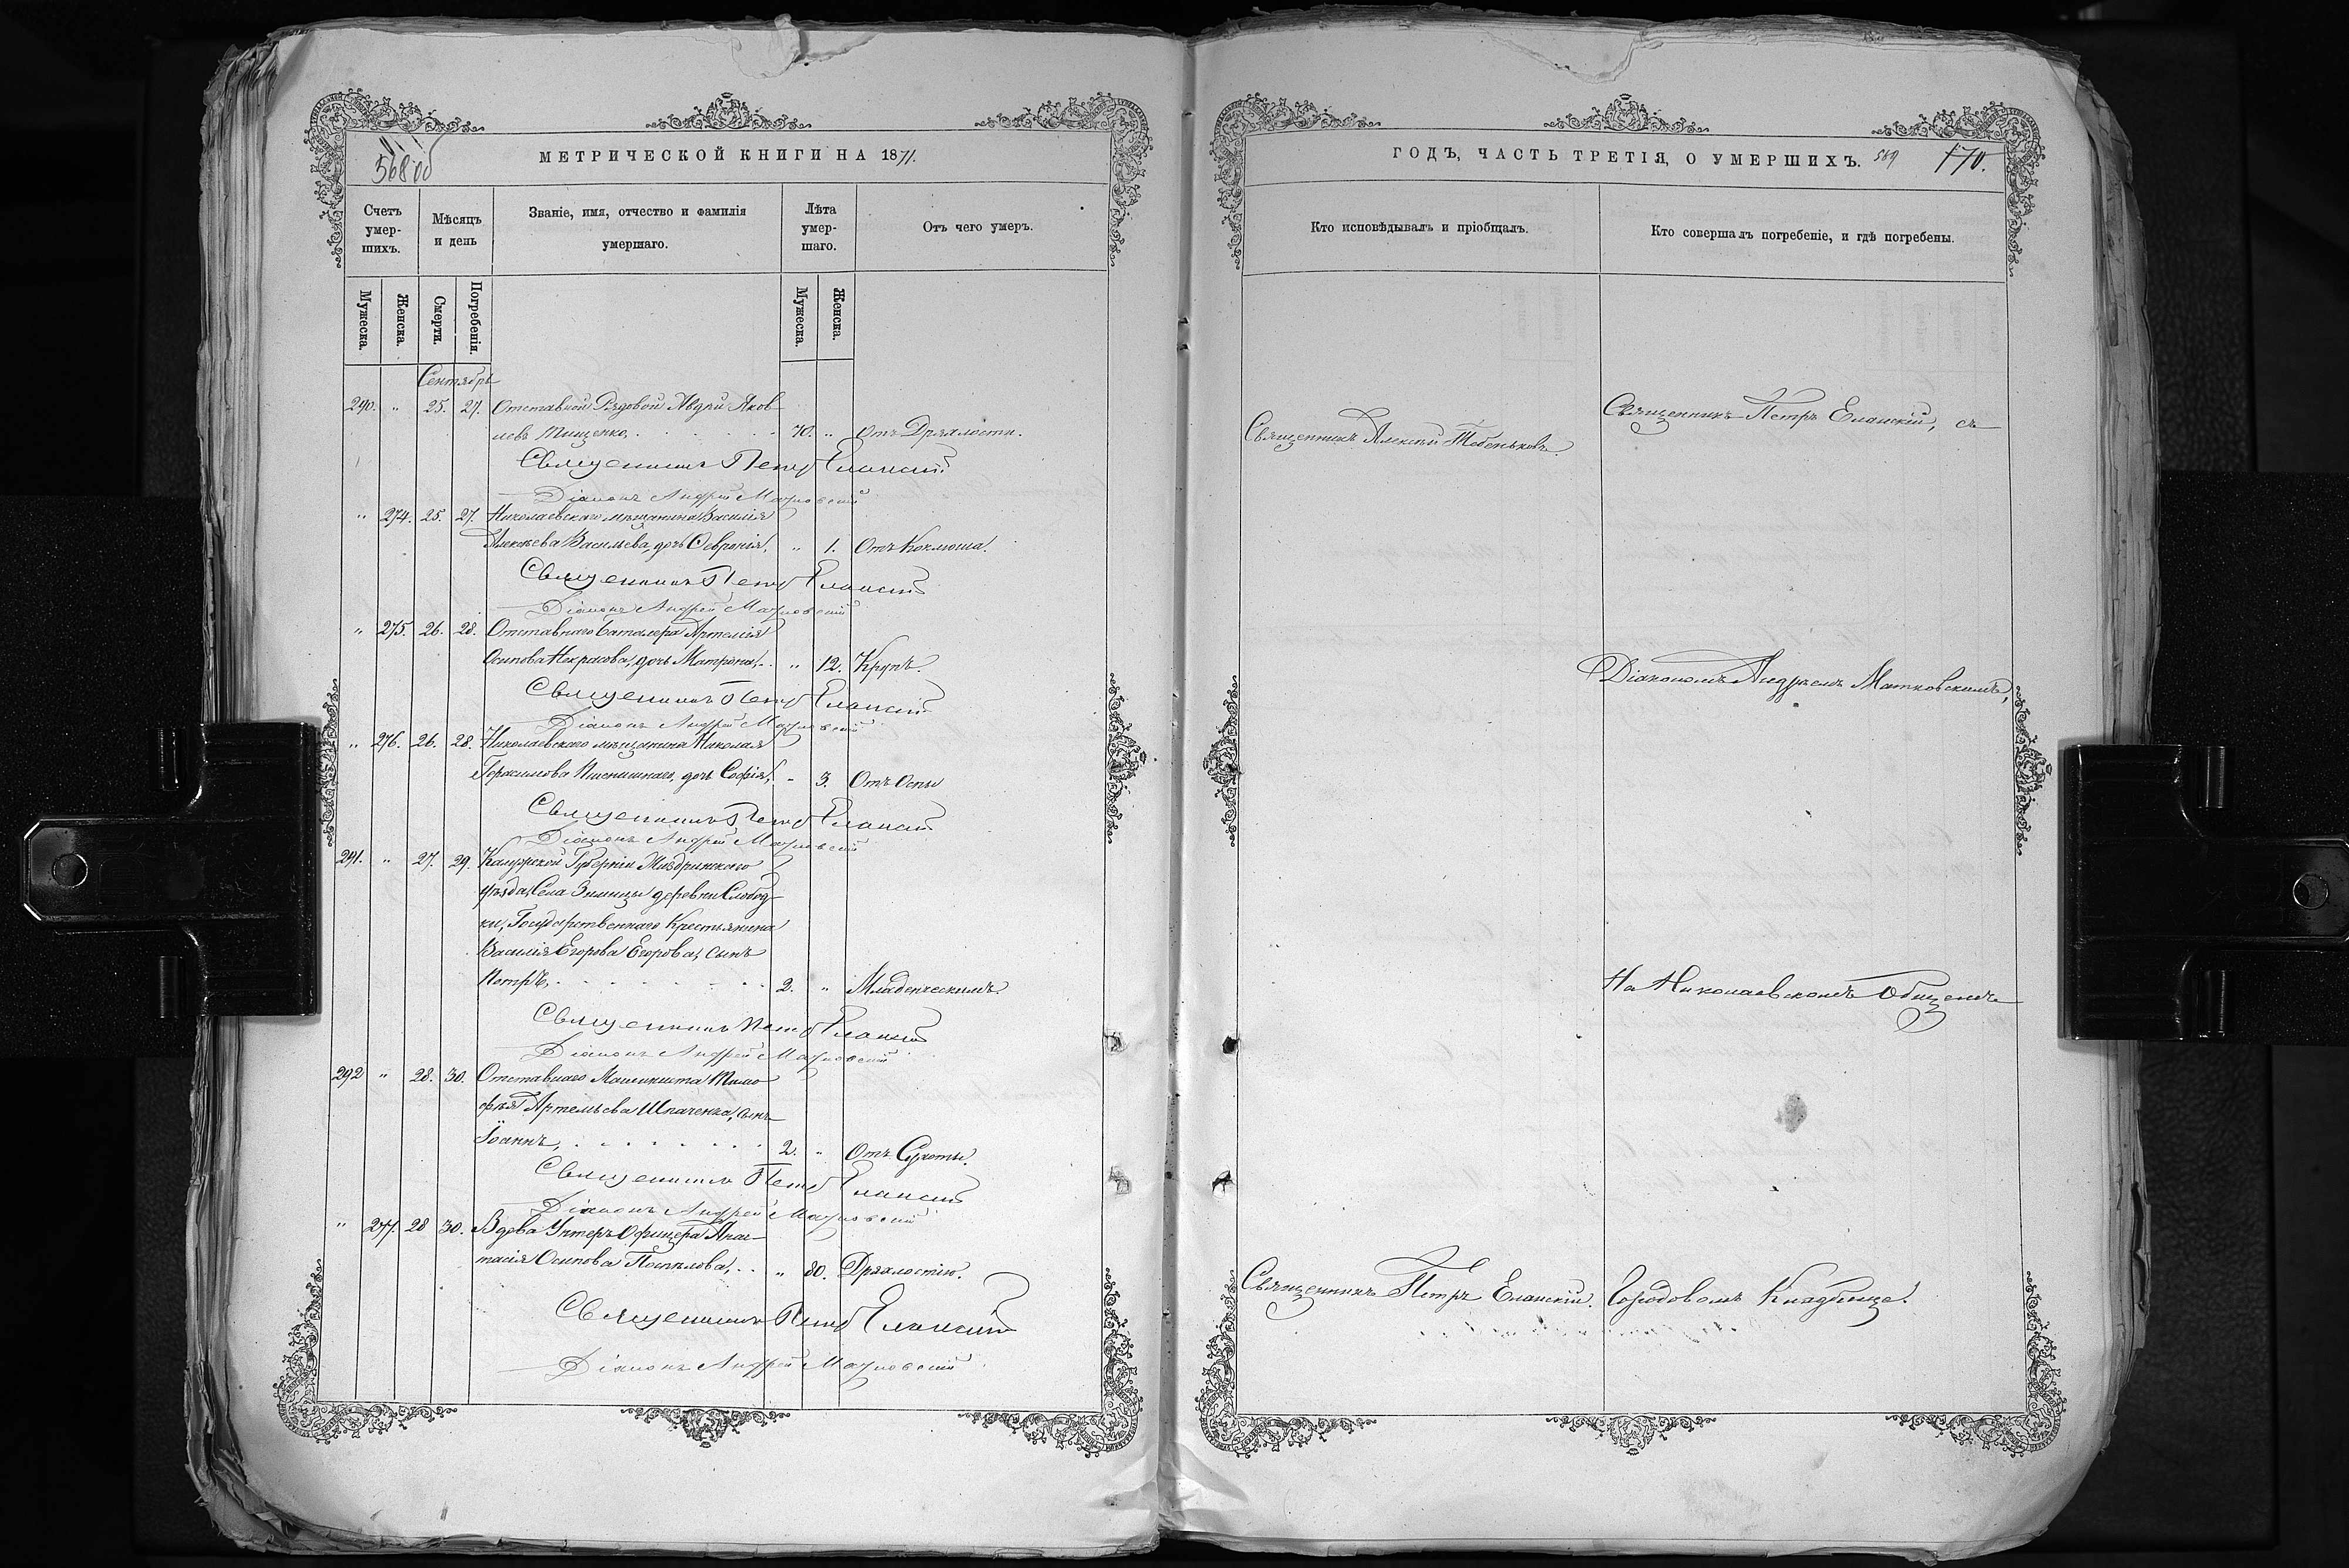 568 об
МЕТРИЧЕСКОЙ КНИГИ НА 1871.
Счетъ умер-шихъ.
Мѣсяцъ и день
Званіе, имя, отчество и фамилія умершаго.
Лѣта умер-шаго.
Отъ чего умеръ.
Мужеска. Женска. Смерти. Погребенія. Мужеска. Женска.
Сентябрь
290. " 25. 27. Отставной Рядовой Авдѣй Яков-
левъ Тищенко, 70. " Отъ Дряхлости.
Священникъ Петръ Еланскій
Діаконъ Андрей Матковскій
" 274. 25. 27. Николаевскаго мѣщанина Василія
Алексѣева Васильева, дочь Февронія, " 1. Отъ Коклюша.
Священникъ Петръ Еланскій
Діаконъ Андрей Матковскій
" 275. 26. 28. Отставнаго баталера Артемія
Осипова Некрасова, дочь Матрона, " 12. Крупъ.
Священникъ Петръ Еланскій
Діаконъ Андрей Матковскій
" 276. 26. 28. Николаевскаго мѣщанина Николая
Герасимова Пшенишнаго, дочь Софія, " 3. Отъ Оспы
Священникъ Петръ Еланскій
Діаконъ Андрей Матковскій
291. " 27. 29. Калужской Губерніи Жиздринскаго
уѣзда, Села Зимницы деревни Слобод-
ки, Государственнаго Крестьянина
Василія Егорова Егорова, сынъ
Петръ, 2. " Младенческимъ.
Священникъ Петръ Еланскій
Діаконъ Андрей Матковскій
292 " 28. 30. Отставнаго Машиниста Тимо-
фѣя Артемьева Шпаченка, сынъ
Іоаннъ, 2. " Отъ Сухоты.
Священникъ Петръ Еланскій
Діаконъ Андрей Матковскій
" 277. 28 30. Вдова Унтеръ Офицера Анас-
тасія Осипова Поспѣлова, " 80. Дряхлостію.
Священникъ Петръ Еланскій
Діаконъ Андрей Матковскій
ГОДЪ, ЧАСТЬ ТРЕТІЯ, О УМЕРШИХЪ. 569 170.
Кто исповѣдывалъ и пріобщалъ.
Кто совершалъ погребеніе, и гдѣ погребены.
Священникъ Петръ Еланскій, съ
Священникъ Алексѣй Тебеньковъ.
Діакономъ Андреемъ Матковскимъ,
На Николаевскомъ Общемъ
Священникъ Петръ Еланскій. Городовомъ Кладбище.